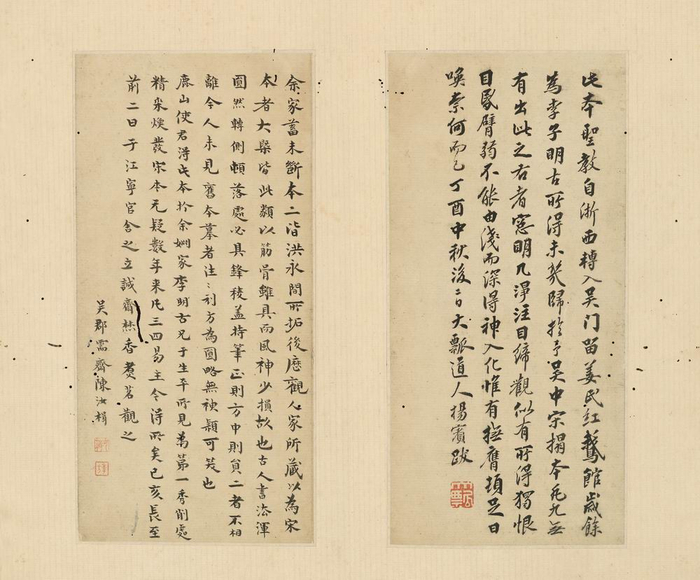 此本聖教自浙西轉入吴门留姜氏紅鵝館歲餘
為李子明古所得未幾歸於予吴中宋搨本凢九無
有出此之右者窓明几淨注目締觀似有所得獨恨
目昬臂弱不能由淺而深得神入化惟有撫膺頓足日
喚奈何而已丁酉中秋後二日大瓢道人楊賓跋
余家蓄未斷本二皆洪永間所拓後應觀人家所藏以為宋
本者大槩皆此類以筋骨雖具而風神少損故也古人書法渾
圓然轉側頓落處必具鋒稜盖持筆正則方中則負二者不相
離今人未見舊本摹者往〻刓方為圓略無神穎可笑也
鹿山使君淂此本於余姻家李明古兄于生平所見為第一香削處
精采煥發宋本无疑數年来凢三四易主今淂所矣己亥長至
前二日于江寧官舍之立誠齋焚香煑茗觀之
吴郡需齋陳汝楫